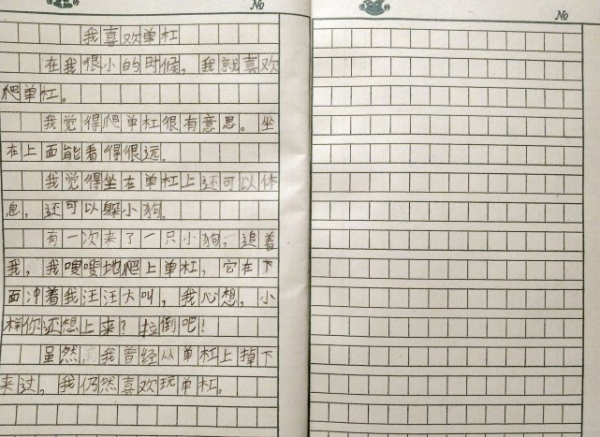 No
No
我喜欢单杠
在我很小的时候，我就喜欢
爬单杠。
我觉得爬单杠很有意思。坐
在上面能看得很远。
我觉得坐在单杠上还可以休
息，还可以躲小狗。
有一次来了一只小狗，追着
我，我嗖嗖地爬上单杠，它在下
面冲着我汪汪大叫，我心想，小
样你还想上来？拉倒吧！
虽然，我曾经从单杠上掉下
来过，我仍然喜欢玩单杠。